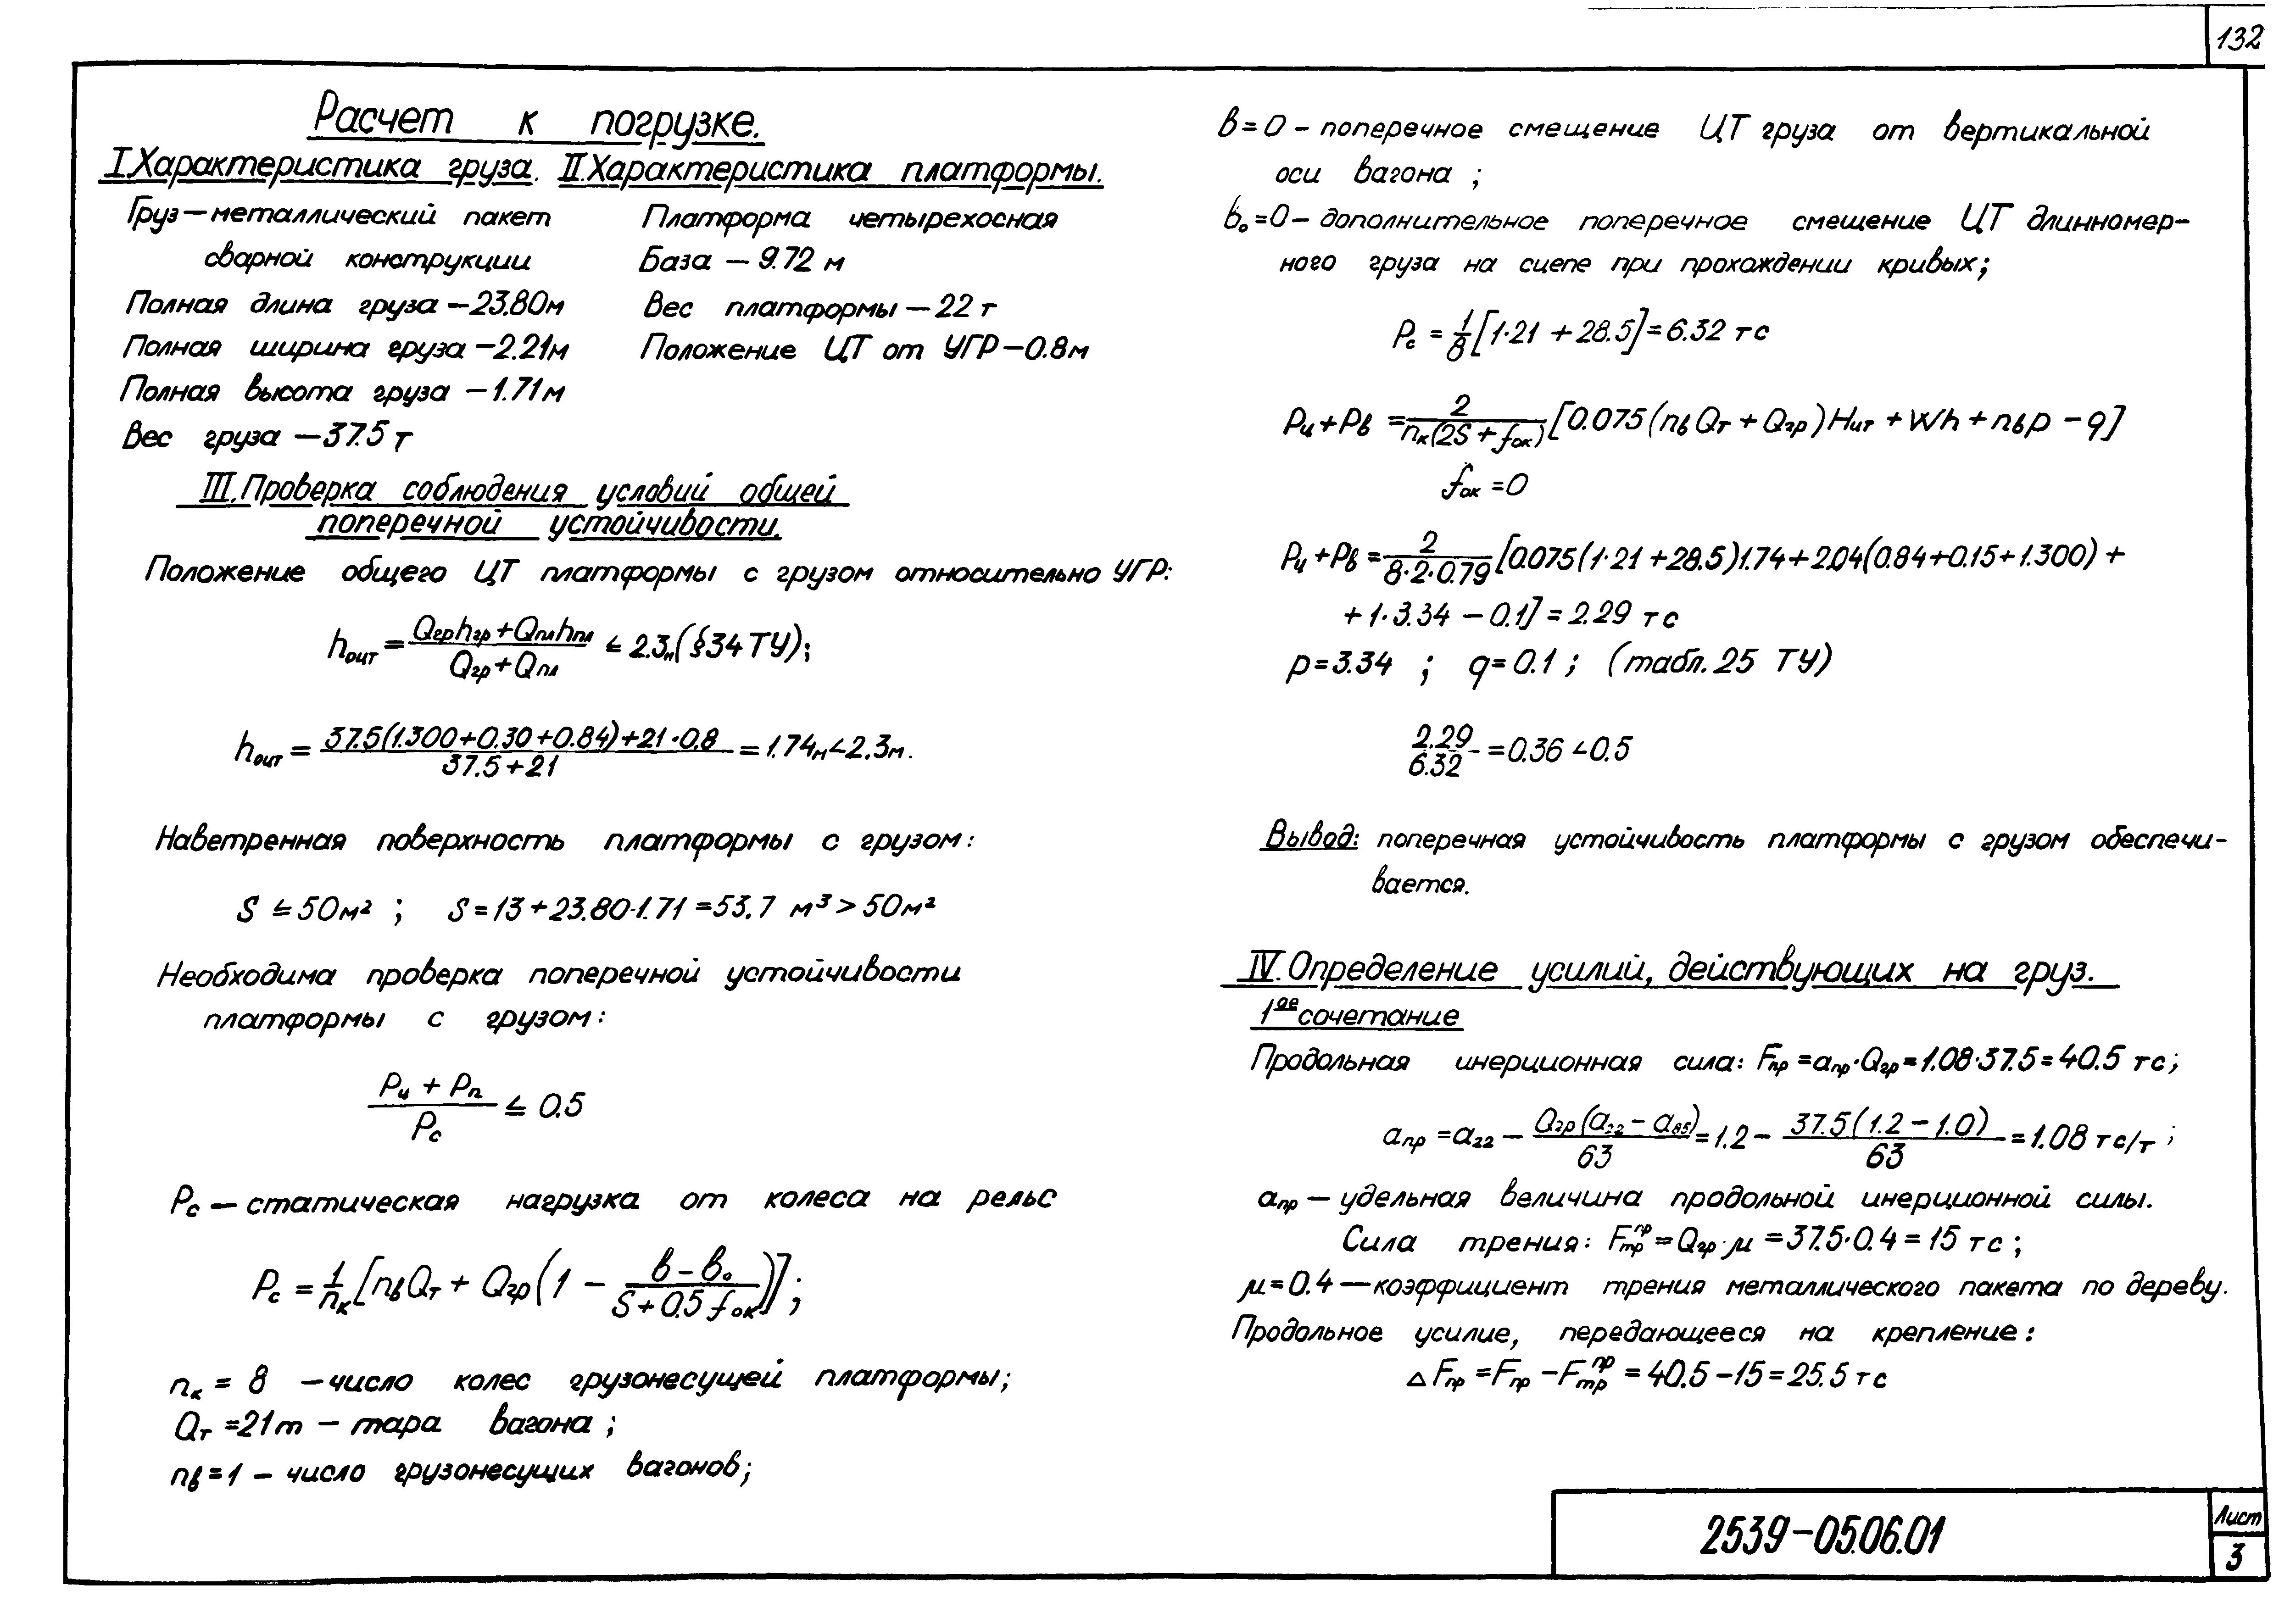 132
Расчет к погрузке.
I. Характеристика груза. II. Характеристика платформы.
Груз — металлический пакет
сварной конструкции
Полная длина груза — 23.80м
Полная ширина груза — 2.21м
Полная высота груза — 1.71м
Вес груза — 37.5 т
Платформа четырехосная
База — 9.72 м
Вес платформы — 22 т
Положение ЦТ от УГР — 0.8м
III. Проверка соблюдения условий общей
поперечной устойчивости.
Положение общего ЦТ платформы с грузом относительно УГР:
hоцт = (Qгр hгр + Qпл hпл) / (Qгр + Qпл) ≤ 2.3м (§34 ТУ);
hоцт = (37.5(1.300+0.30+0.84)+21·0.8) / (37.5+21) = 1.74м < 2.3м.
Наветренная поверхность платформы с грузом:
S ≤ 50м² ; S = 13 + 23.80·1.71 = 53.7 м³ > 50м²
Необходима проверка поперечной устойчивости
платформы с грузом:
(Рц + Рп) / Рс ≤ 0.5
Рс — статическая нагрузка от колеса на рельс
Рс = 1/nк [nв Qт + Qгр (1 − (в − в₀) / (S + 0.5 fок))];
nк = 8 — число колес грузонесущей платформы;
Qт = 21т — тара вагона ;
nв = 1 — число грузонесущих вагонов;
в = 0 — поперечное смещение ЦТ груза от вертикальной
оси вагона ;
b₀ = 0 — дополнительное поперечное смещение ЦТ длинномер-
ного груза на сцепе при прохождении кривых;
Рс = 1/8 [1·21 + 28.5] = 6.32 тс
Рц + Рв = 2 / (nк(2S + fок)) [0.075 (nв Qт + Qгр) Нцт + Wh + nвр − q]
fок = 0
Рц + Рв = 2 / (8·2·0.79) [0.075(1·21 + 28.5)1.74 + 2.04(0.84+0.15+1.300) +
+ 1·3.34 − 0.1] = 2.29 тс
р = 3.34 ; q = 0.1 ; (табл. 25 ТУ)
2.29 / 6.32 = 0.36 < 0.5
Вывод: поперечная устойчивость платформы с грузом обеспечи-
вается.
IV. Определение усилий, действующих на груз.
1ое сочетание
Продольная инерционная сила: Fпр = апр·Qгр = 1.08·37.5 = 40.5 тс;
апр = а22 − Qгр(а22 − а85) / 63 = 1.2 − 37.5(1.2 − 1.0) / 63 = 1.08 тс/т ;
апр — удельная величина продольной инерционной силы.
Сила трения: Fтр^пр = Qгр·μ = 37.5·0.4 = 15 тс ;
μ = 0.4 — коэффициент трения металлического пакета по дереву.
Продольное усилие, передающееся на крепление:
△ Fпр = Fпр − Fтр^пр = 40.5 − 15 = 25.5 тс
2539-05.06.01
Лист
3